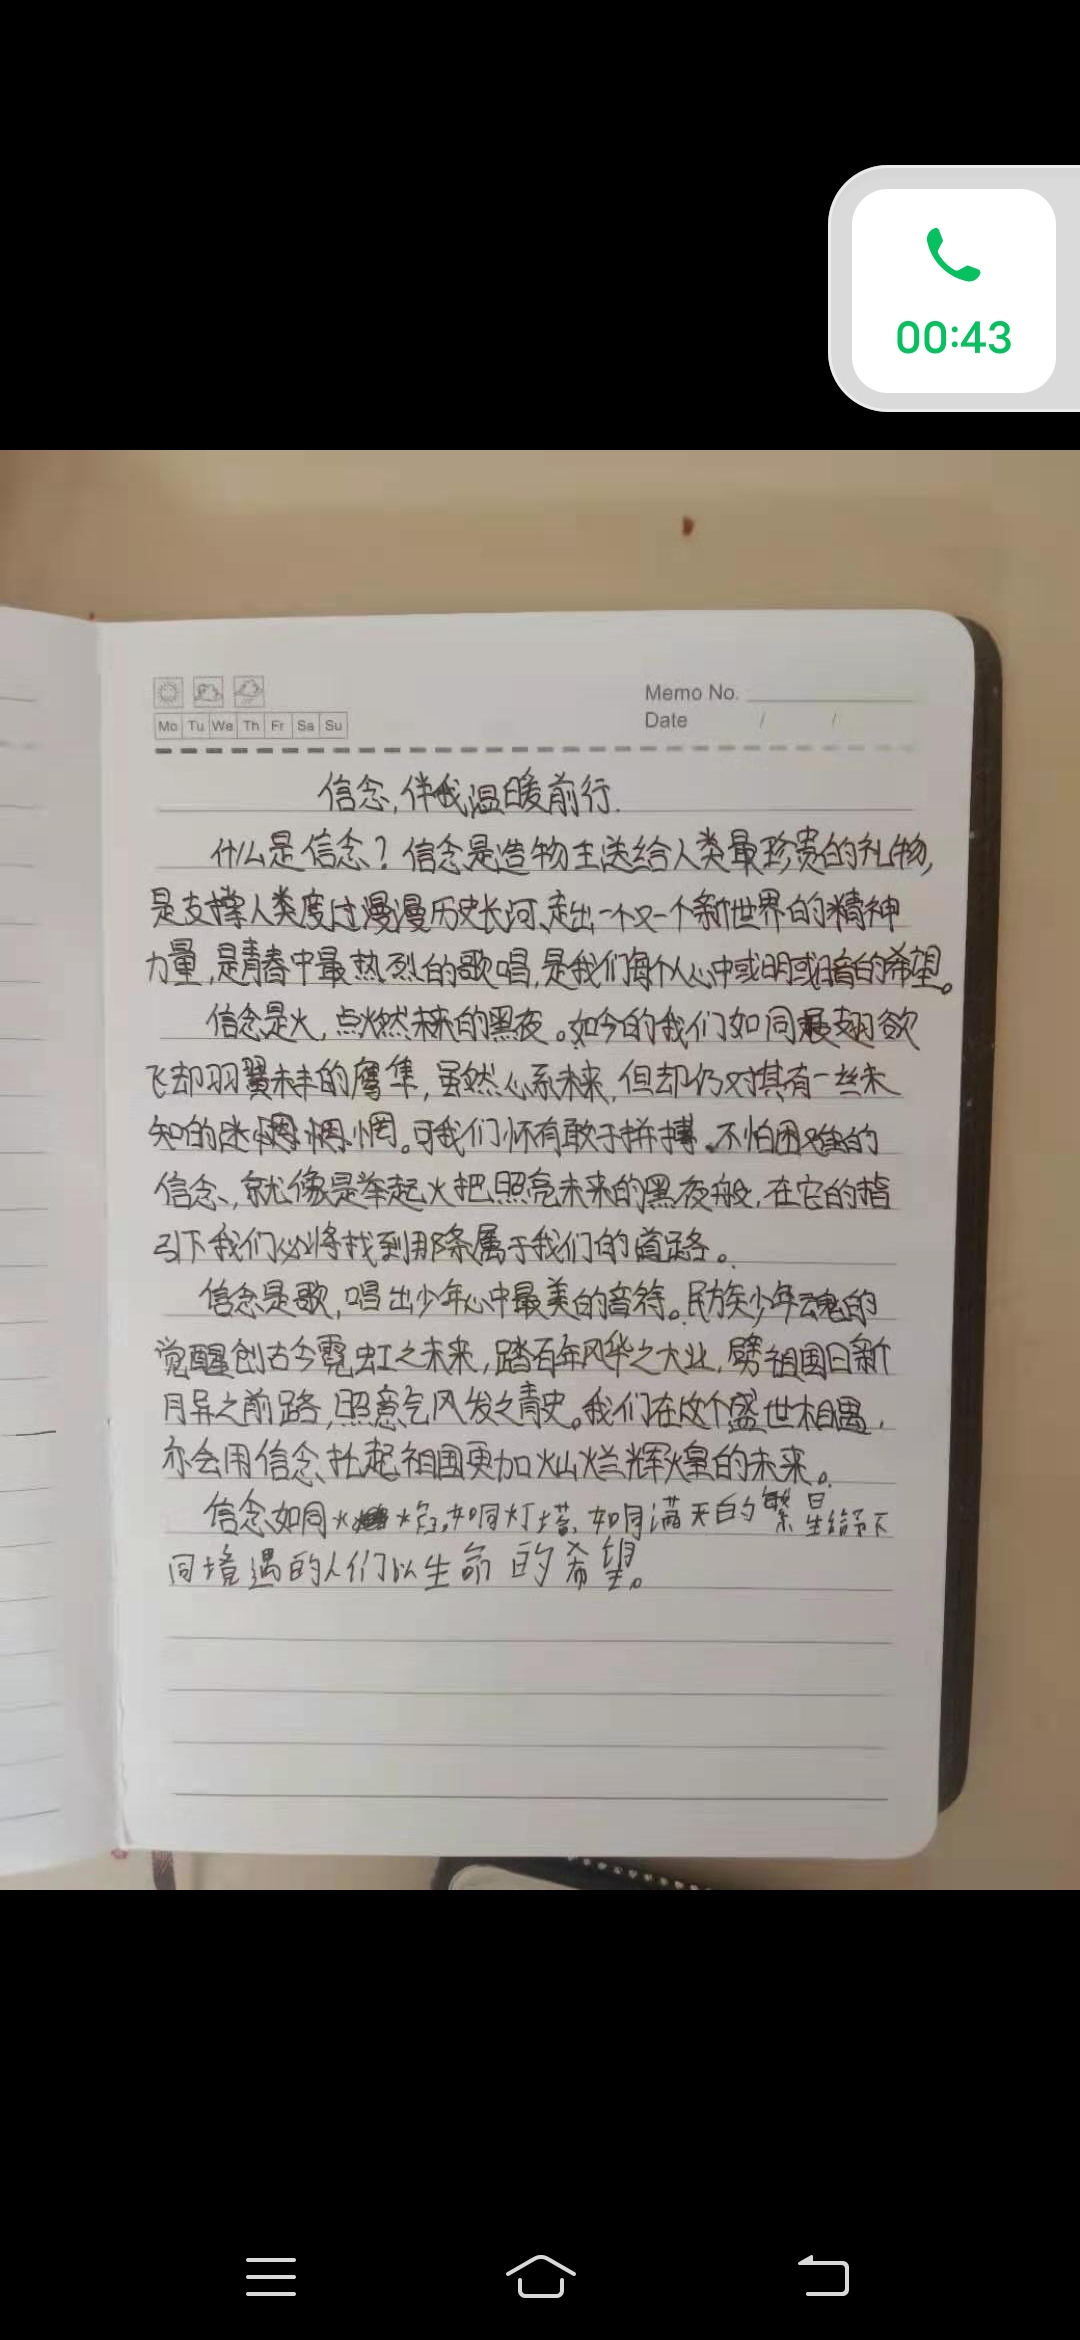 00:43
Memo No.
Mo Tu We Th Fr Sa Su
Date / /
信念,伴我温暖前行.
什么是信念？信念是造物主送给人类最珍贵的礼物,
是支撑人类度过漫漫历史长河、走出一个又一个新世界的精神
力量,是青春中最热烈的歌唱,是我们每个人心中或明或暗的希望。
信念是火,点燃未来的黑夜。如今的我们如同展翅欲
飞却羽翼未丰的鹰隼,虽然心系未来,但却仍对其有一丝未
知的迷惘惆惘。可我们怀有敢于拼搏、不怕困难的
信念、就像是举起火把照亮未来的黑夜般,在它的指
引下我们必将找到那条属于我们的道路。
信念是歌,唱出少年心中最美的音符。民族少年魂的
觉醒创古今霓虹之未来,踏百年风华之大业,劈祖国日新
月异之前路,照意气风发之青史。我们在这个盛世相遇,
亦会用信念托起祖国更加灿烂辉煌的未来。
信念如同火焰,如同灯塔、如同满天白的繁星给予不
同境遇的人们以生命的希望。